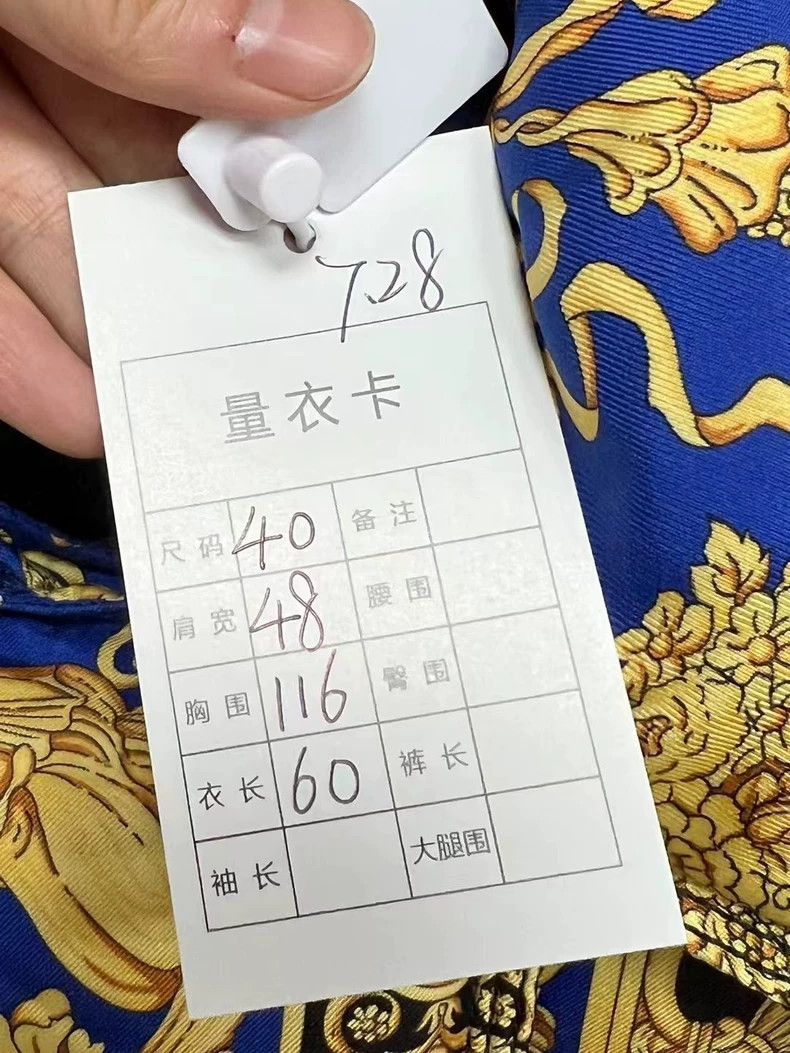 7.28
量衣卡
尺码 40 备注
肩宽 48 腰围
胸围 116 臀围
衣长 60 裤长
袖长 大腿围